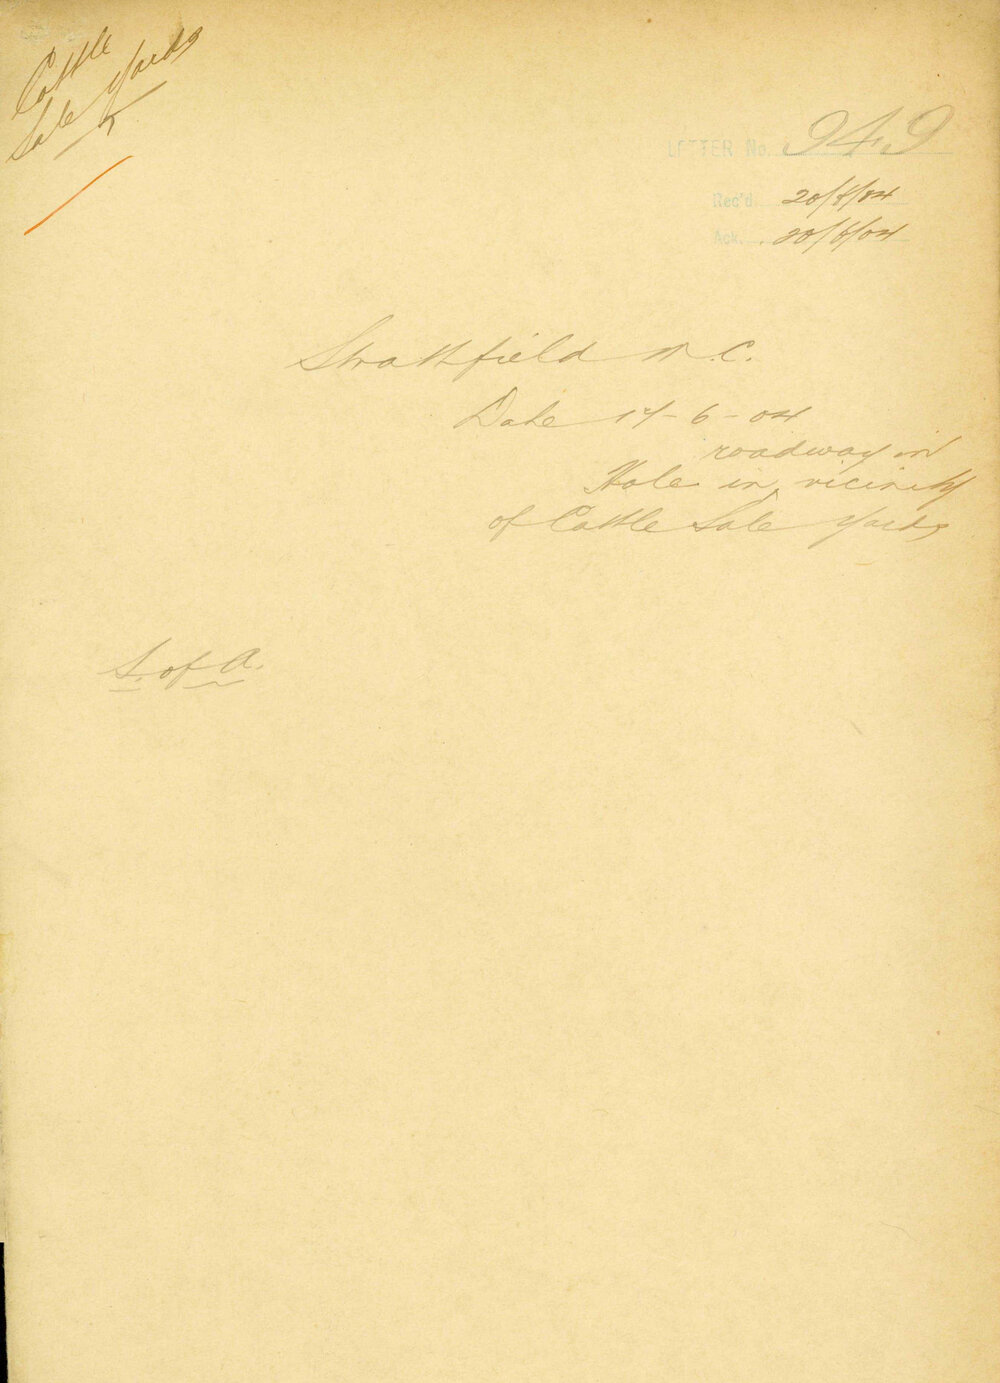 Cattle
Sale Yards
LETTER No. 949
Rec'd. 20/6/04
Ack. 20/6/04
Strathfield M.C.
Date 17-6-04
roadway in
Hole in vicinity
of Cattle Sale Yards
S. of A.